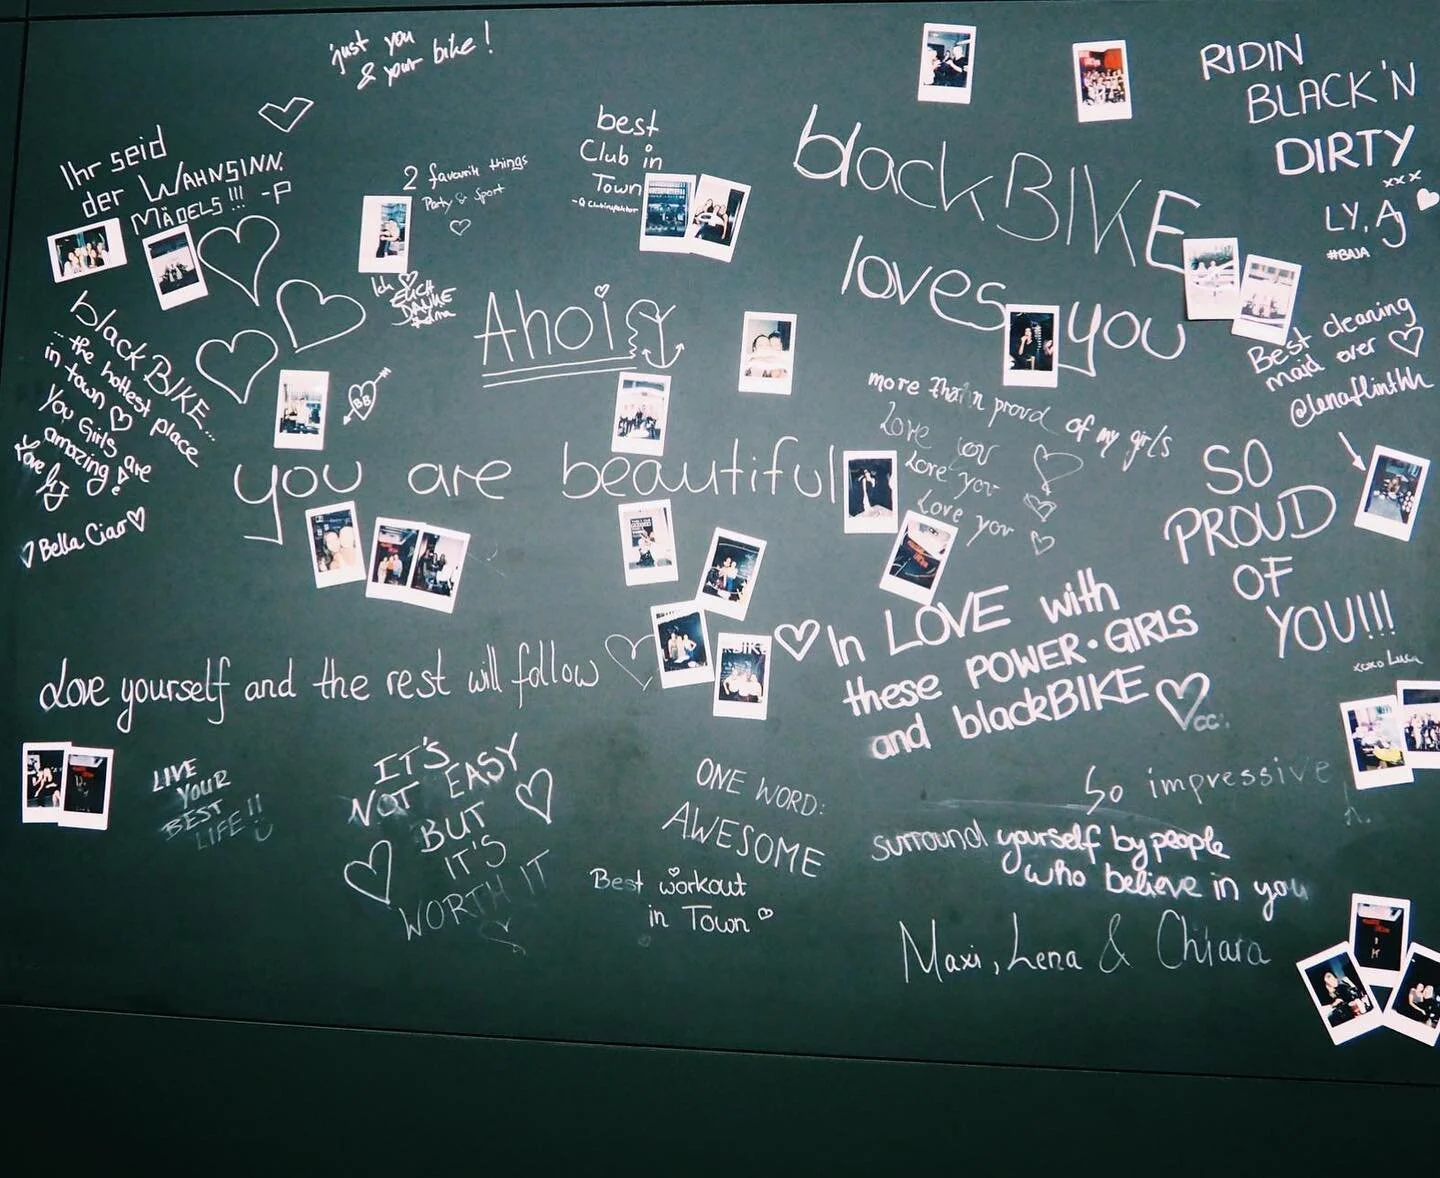 just you
& your bike!
Ihr seid
der WAHNSINN.
MÄDELS!!! -P
2 favourite things
Party & Sport
Ich
EUCH
DANKE
best
Club in
Town
blackBIKE
loves you
RIDIN
BLACK'N
DIRTY
xxx
LY, AJ
Best cleaning
maid ever
@lenaflinthh
blackBIKE...
...the hottest place
in town
You Girls are
amazing!
Love
Bella Ciao
Ahoi
BB
you are beautiful
more than proud of my girls
Love you
Love you
Love you
SO
PROUD
OF
YOU!!!
xoxo Luca
In LOVE with
these POWER·GIRLS
and blackBIKE
CC.
Love yourself and the rest will follow
LIVE
YOUR
BEST
LIFE!!
IT'S
NOT EASY
BUT
IT'S
WORTH IT
ONE WORD:
AWESOME
Best workout
in Town
So impressive
surround yourself by people
who believe in you
Maxi, Lena & Chiara